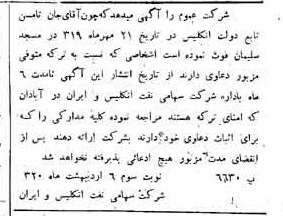 شرکت عموم را آگهی میدهد که چون آقای جان تامسن
تابع دولت انگلیس در تاریخ ۲۱ مهرماه ۳۱۹ در مسجد
سلیمان فوت نموده است اشخاصی که نسبت به ترکه متوفی
مزبور دعاوی دارند از تاریخ انتشار این آگهی تامدت ۶
ماه باداره شرکت سهامی نفت انگلیس و ایران در آبادان
که امنای ترکه هستند مراجعه نموده کلیه مدارکی را که
برای اثبات دعاوی خود دارند بشرکت ارائه دهند پس از
انقضای مدت مزبور هیچ ادعائی پذیرفته نخواهد شد
ب ۶۶۳۰ نوبت سوم ۶ اردیبهشت ماه ۳۲۰
شرکت سهامی نفت انگلیس و ایران